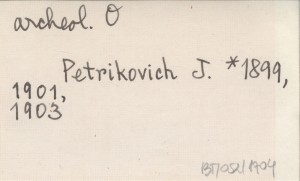 archeol. O
Petrikovich J. *1899,
1901,
1903
BT/OSL/1904